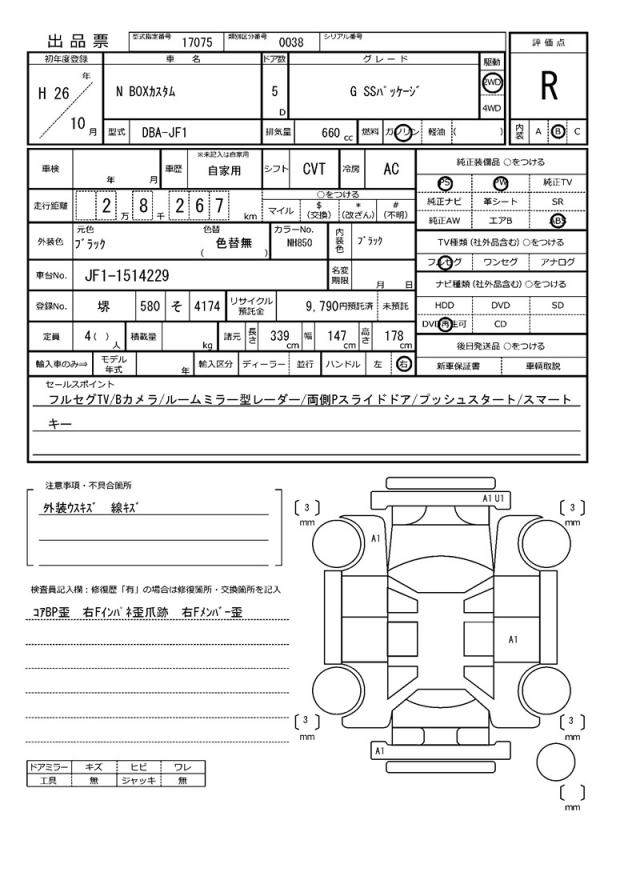 出品票 型式指定番号 17075 類別区分番号 0038 シリアル番号
評価点
R
初年度登録 車名 ドア数 グレード 駆動
H 26 年 10 月 N BOXカスタム 5 D G SSパッケージ 2WD 4WD
型式 DBA-JF1 排気量 660 cc 燃料 ガソリン 軽油 ( ) 内装 A B C
車検 年 月 車歴 ※未記入は自家用 自家用 シフト CVT 冷房 AC
走行距離 2 万 8 千 2 6 7 km ○をつける マイル $ (交換) * (改ざん) # (不明)
外装色 元色 ブラック 色替 色替無 ( ) カラーNo. NH850 内装色 ブラック
車台No. JF1-1514229 名変期限 月 日
登録No. 堺 580 そ 4174 リサイクル預託金 9,790円預託済 未預託
定員 4( ) 人 積載量 kg 諸元 長さ 339 cm 幅 147 cm 高さ 178 cm
輸入車のみ⇒ モデル年式 年 輸入区分 ディーラー 並行 ハンドル 左 右
純正装備品 ○をつける
PS PW 純正TV
純正ナビ 革シート SR
純正AW エアB ABS
TV種類 (社外品含む) ○をつける
フルセグ ワンセグ アナログ
ナビ種類 (社外品含む) ○をつける
HDD DVD SD
DVD再生可 CD
後日発送品 ○をつける
新車保証書 車輌取説
セールスポイント
フルセグTV/Bカメラ/ルームミラー型レーダー/両側Pスライドドア/プッシュスタート/スマート
キー
注意事項・不具合箇所
外装ウスキズ 線キズ
検査員記入欄：修復歴「有」の場合は修復箇所・交換箇所を記入
コアBP歪 右Fインパネ歪爪跡 右Fメンバー歪
ドアミラー キズ ヒビ ワレ
工具 無 ジャッキ 無
A1 U1
3 mm
3 mm
A1
A1
3 mm
3 mm
A1
mm